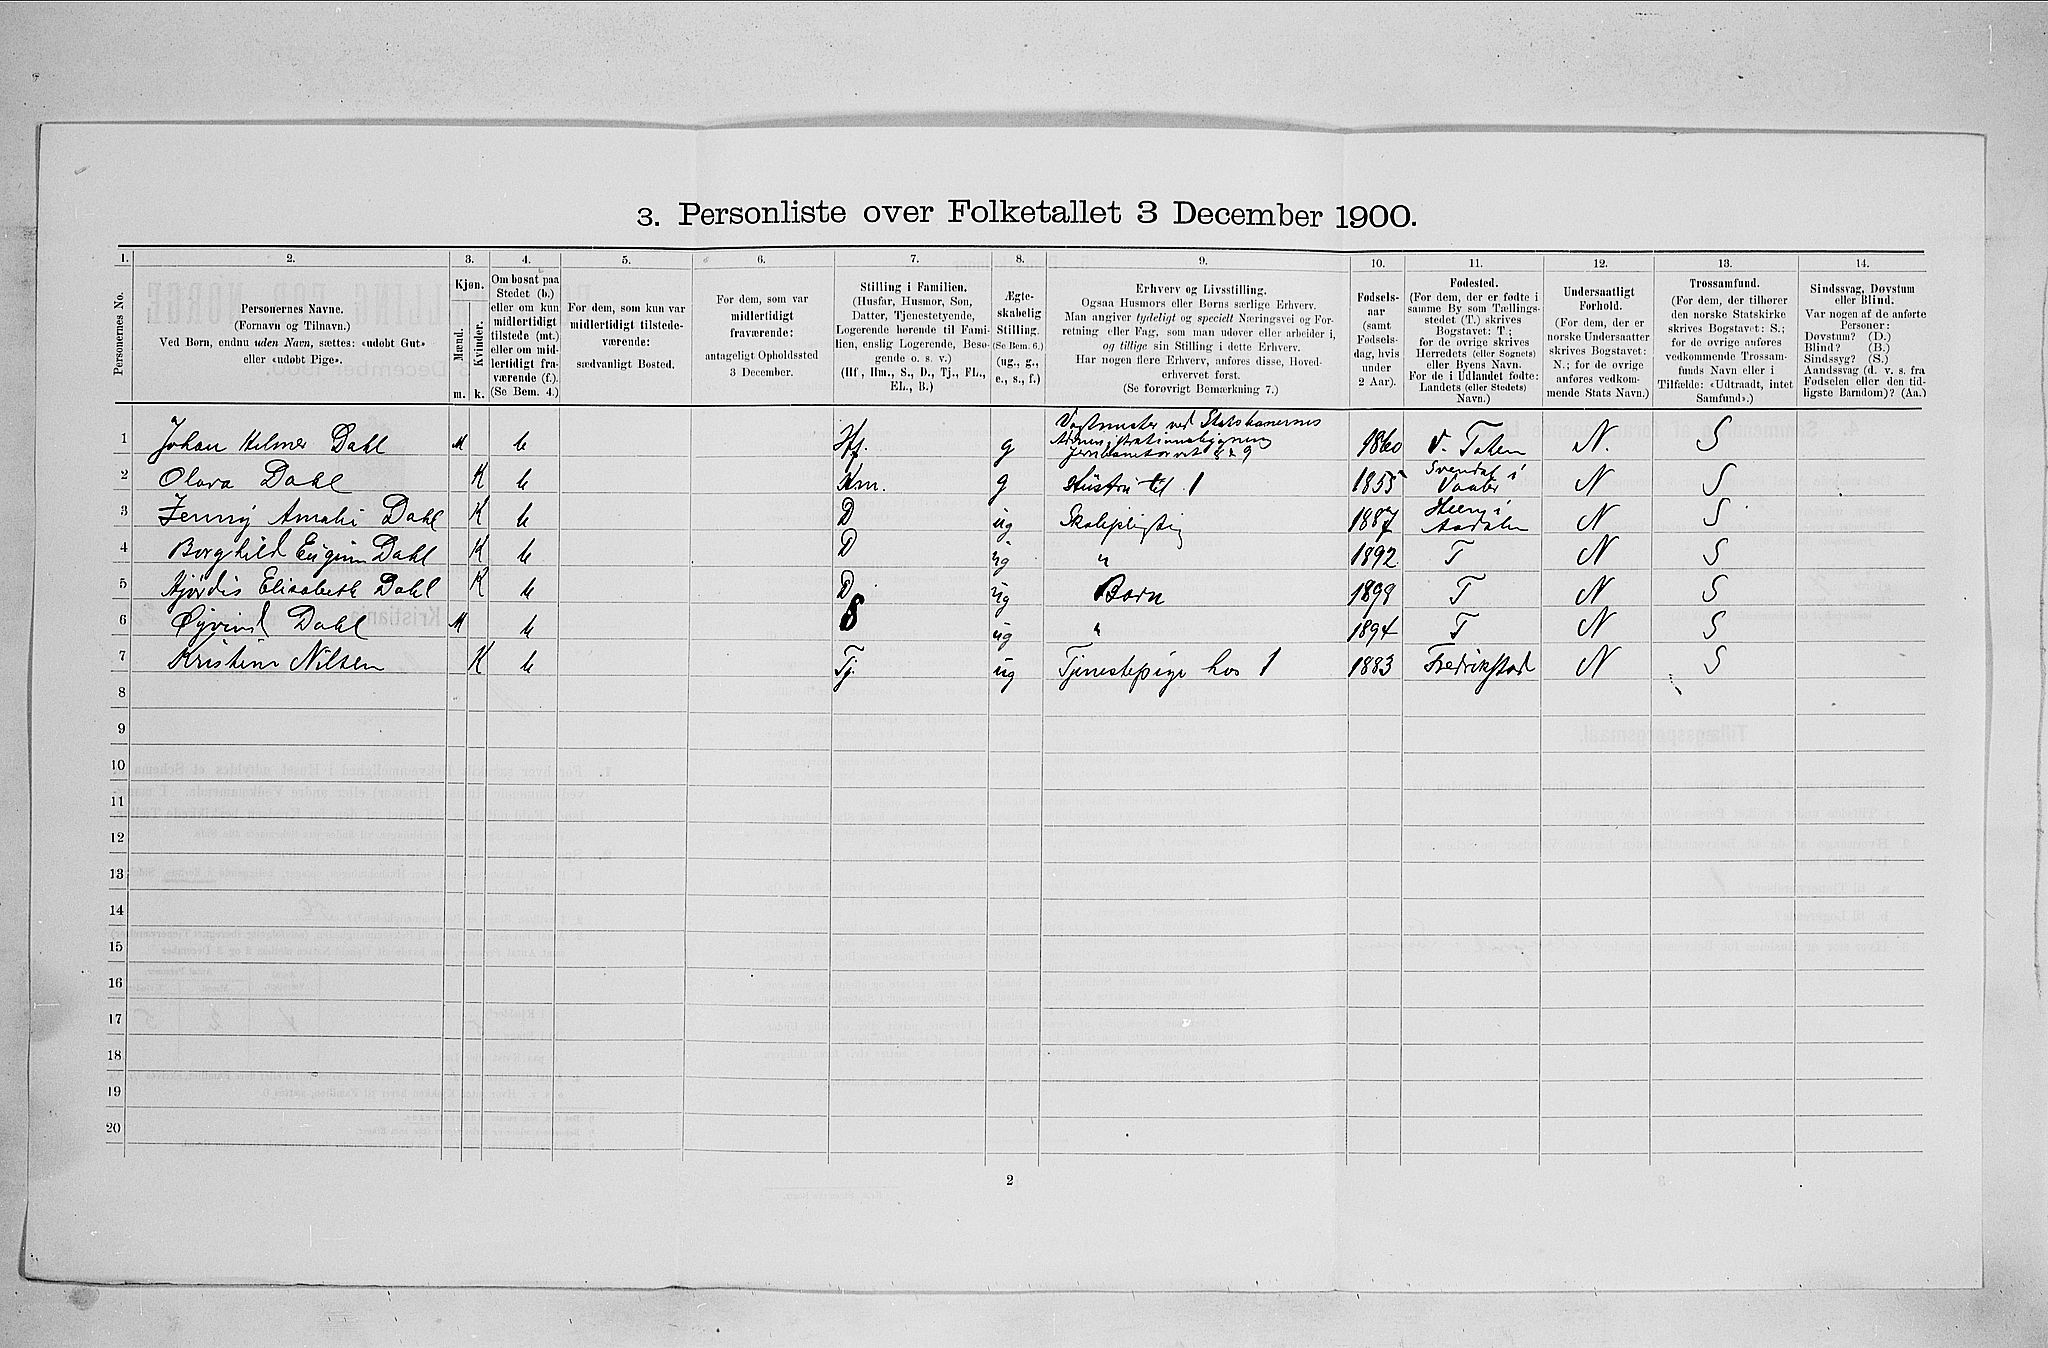 3. Personliste over Folketallet 3 December 1900.
1. 2. 3. 4. 5. 6. 7. 8. 9. 10. 11. 12. 13. 14.
Personernes No.
Personernes Navne.
(Fornavn og Tilnavn.)
Ved Børn, endnu uden Navn, sættes: «udøbt Gut»
eller «udøbt Pige».
Kjøn.
Mænd.
Kvinder.
m. k.
Om bosat paa
Stedet (b.)
eller om kun
midlertidigt
tilstede (mt.)
eller om mid-
lertidigt fra-
værende (f.).
(Se Bem. 4.)
For dem, som kun var
midlertidigt tilstede-
værende:
sædvanligt Bosted.
For dem, som var
midlertidigt
fraværende:
antageligt Opholdssted
3 December.
Stilling i Familien.
(Husfar, Husmor, Søn,
Datter, Tjenestetyende,
Logerende hørende til Fami-
lien, enslig Logerende, Besø-
gende o. s. v.)
(Hf., Hm., S., D., Tj., FL.,
EL., B.)
Ægte-
skabelig
Stilling.
(Se Bem. 6.)
(ug., g.,
e., s., f.)
Erhverv og Livsstilling.
Ogsaa Husmors eller Børns særlige Erhverv.
Man angiver tydeligt og specielt Næringsvei og For-
retning eller Fag, som man udøver eller arbeider i,
og tillige sin Stilling i dette Erhverv.
Har nogen flere Erhverv, anføres disse, Hoved-
erhvervet først.
(Se forøvrigt Bemærkning 7.)
Fødsels-
aar
(samt
Fødsels-
dag, hvis
under
2 Aar).
Fødested.
(For dem, der er fødte i
samme By som Tællings-
stedet (T.) skrives
Bogstavet: T;
for de øvrige skrives
Herredets (eller Sognets)
eller Byens Navn.
For de i Udlandet fødte:
Landets (eller Stedets)
Navn.)
Undersaatligt
Forhold.
(For dem, der er
norske Undersaatter
skrives Bogstavet:
N.; for de øvrige
anføres vedkom-
mende Stats Navn.)
Trossamfund.
(For dem, der tilhører
den norske Statskirke
skrives Bogstavet: S.;
for de øvrige anføres
vedkommende Trossam-
funds Navn eller i
Tilfælde: «Udtraadt, intet
Samfund».)
Sindssvag, Døvstum
eller Blind.
Var nogen af de anførte
Personer:
Døvstum? (D.)
Blind? (B.)
Sindssyg? (S.)
Aandssvag (d. v. s. fra
Fødselen eller den tid-
ligste Barndom)? (Aa.)
1 Johan Hilmer Dahl M b Hf. g Vagtmester ved Statsbanernes Administrationsbygning Jernbanetorvet 8 & 9 1860 V. Toten N. S
2 Olava Dahl K b Hm. g Hustru til 1 1855 Svendal i Vaaler N S
3 Jenny Amalie Dahl K b D ug Skolepligtig 1887 i Aadalen N S
4 Borghild Eugenie Dahl K b D ug " 1892 T N S
5 Hjørdis Elisabeth Dahl K b D. ug Barn T N S
6 Øyvind Dahl M b S ug " 1894 T N S
7 Kristine Nilsen K b Tj. ug Tjenestepige hos 1 1883 Fredrikstad N S
8
9
10
11
12
13
14
15
16
17
18
19
20
2